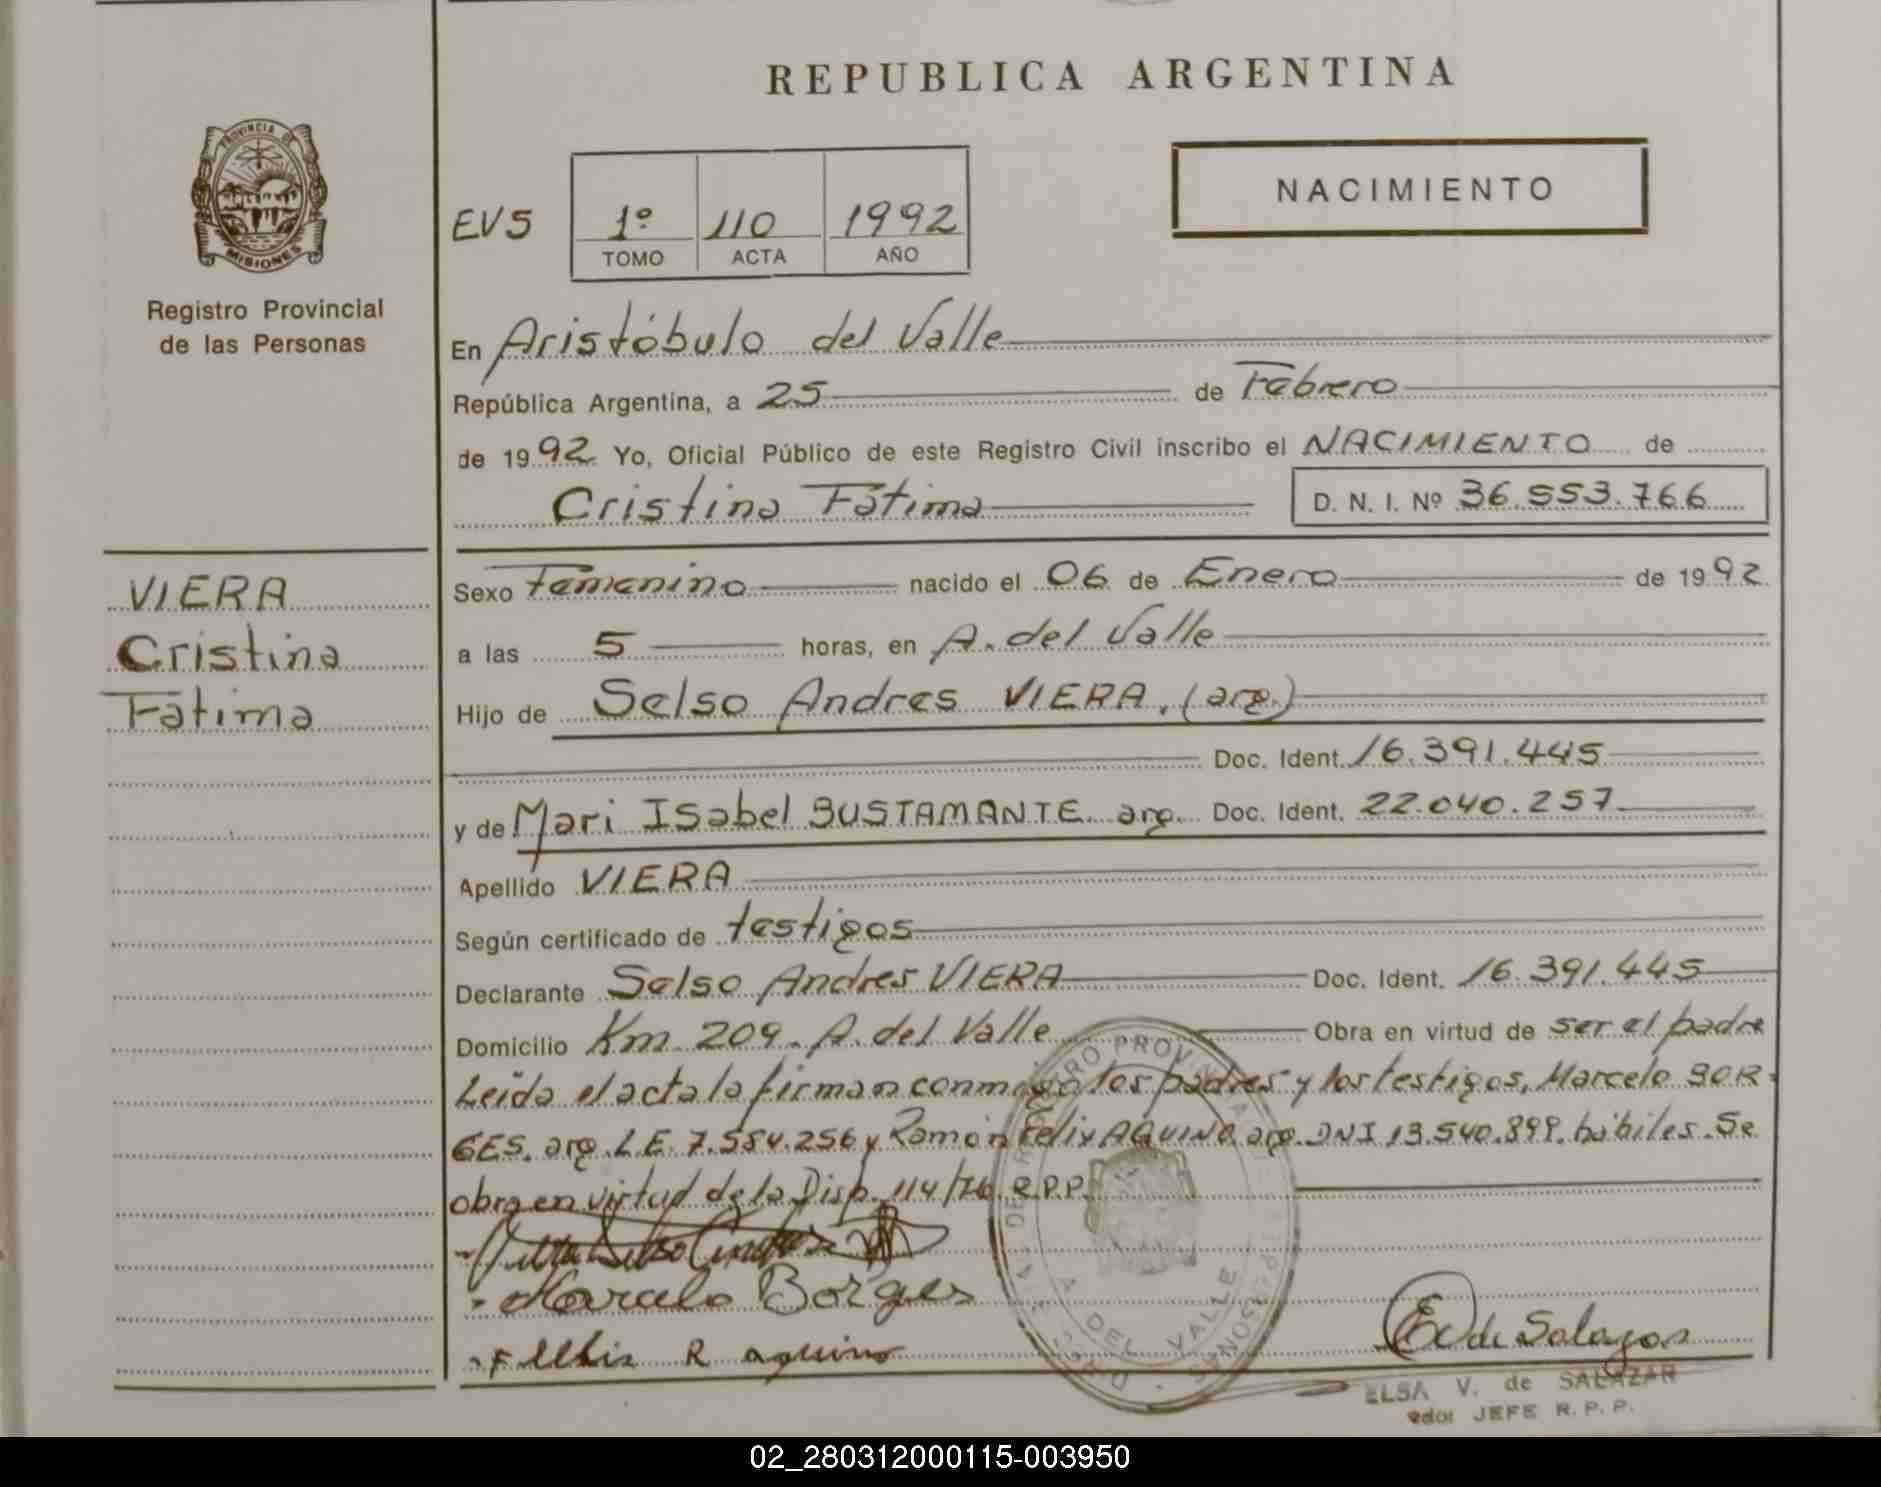 REPUBLICA ARGENTINA
PROVINCIA DE
MISIONES
Registro Provincial
de las Personas
NACIMIENTO
EVS 1º 110 1992
TOMO ACTA AÑO
En Aristóbulo del Valle
República Argentina, a 25 de Febrero
de 1992 Yo, Oficial Público de este Registro Civil inscribo el NACIMIENTO de
Cristina Fátima D. N. I. Nº 36.553.766
VIERA
Cristina
Fatima
Sexo Femenino nacido el 06 de Enero de 1992
a las 5 horas, en A. del Valle
Hijo de Selso Andres VIERA. (arg.)
Doc. Ident. 16.391.445
y de Mari Isabel BUSTAMANTE arg. Doc. Ident. 22.040.257
Apellido VIERA
Según certificado de testigos
Declarante Selso Andres VIERA Doc. Ident. 16.391.445
Domicilio Km 209. A. del Valle Obra en virtud de ser el padre
Leída el acta la firman conmigo los padres y los testigos, Marcelo BOR-
GES. arg. L.E. 7.584.256 y Ramón Felix AQUINO arg. DNI 13.540.899. hábiles. Se
obra en virtud de la Disp. 114/76. R.P.P.
Marcelo Borges
R aquino
E V de Salazar
A DEL VALLE
ELSA V. de SALAZAR
JEFE R. P. P.
02_280312000115-003950